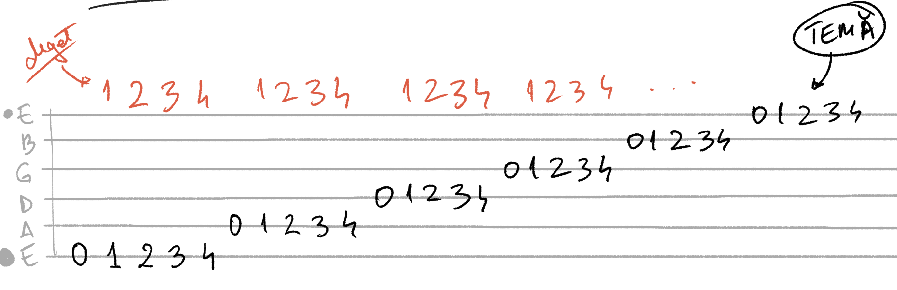 TEMĂ
deget
1 2 3 4 1 2 3 4 1 2 3 4 1 2 3 4 ...
E 0 1 2 3 4
B 0 1 2 3 4
G 0 1 2 3 4
D 0 1 2 3 4
A 0 1 2 3 4
E 0 1 2 3 4